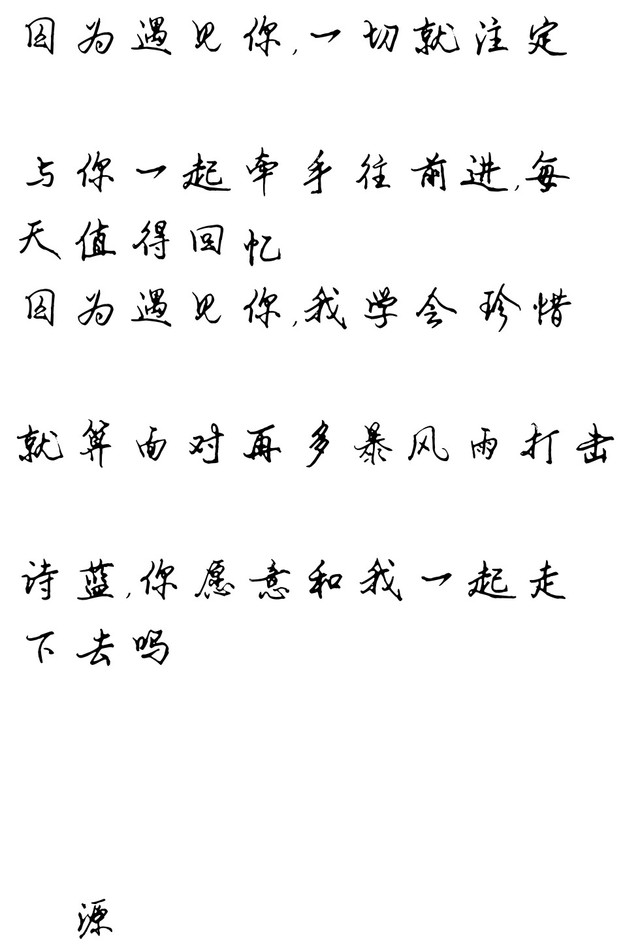 因为遇见你,一切就注定
与你一起牵手往前进,每
天值得回忆
因为遇见你,我学会珍惜
就算面对再多暴风雨打击
诗蓝,你愿意和我一起走
下去吗
源